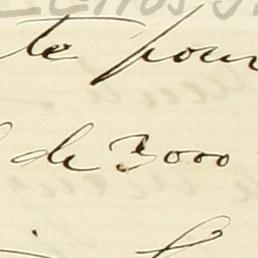 te pour
de 3000